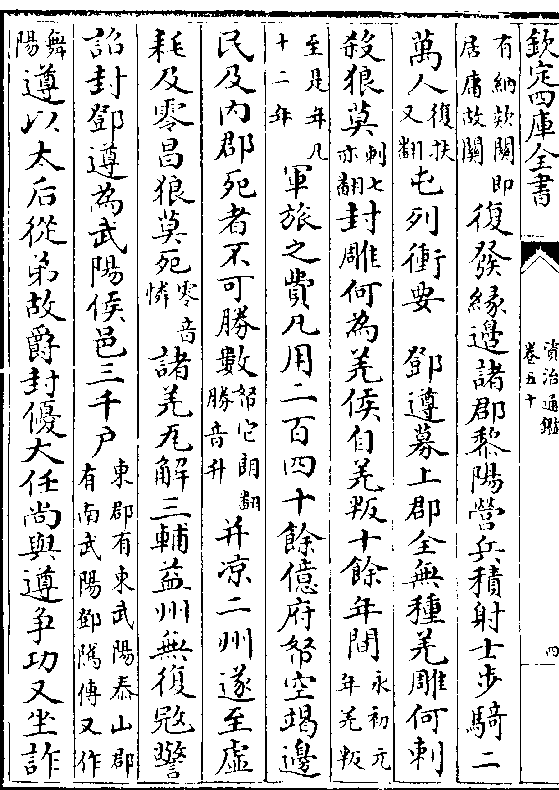 欽定四庫全書
資治通鑑
卷五十
四
有納欵關即居庸故關復發緣邊諸郡黎陽營兵積射士步騎二
萬人復扶又翻屯列衝要　鄧遵募上郡全無種羌雕何刺
殺狼莫刺七亦翻封雕何為羌侯自羌叛十餘年間永初元年羌叛
至是年凡十二年軍旅之費凡用二百四十餘億府帑空竭邊
民及內郡死者不可勝數帑它朗翻勝音升并凉二州遂至虛
耗及零昌狼莫死零音憐諸羌瓦解三輔益州無復宼警
詔封鄧遵為武陽侯邑三千户東郡有東武陽泰山郡有南武陽鄧隲傳又作
舞陽遵以太后從弟故爵封優大任尚與遵争功又坐詐